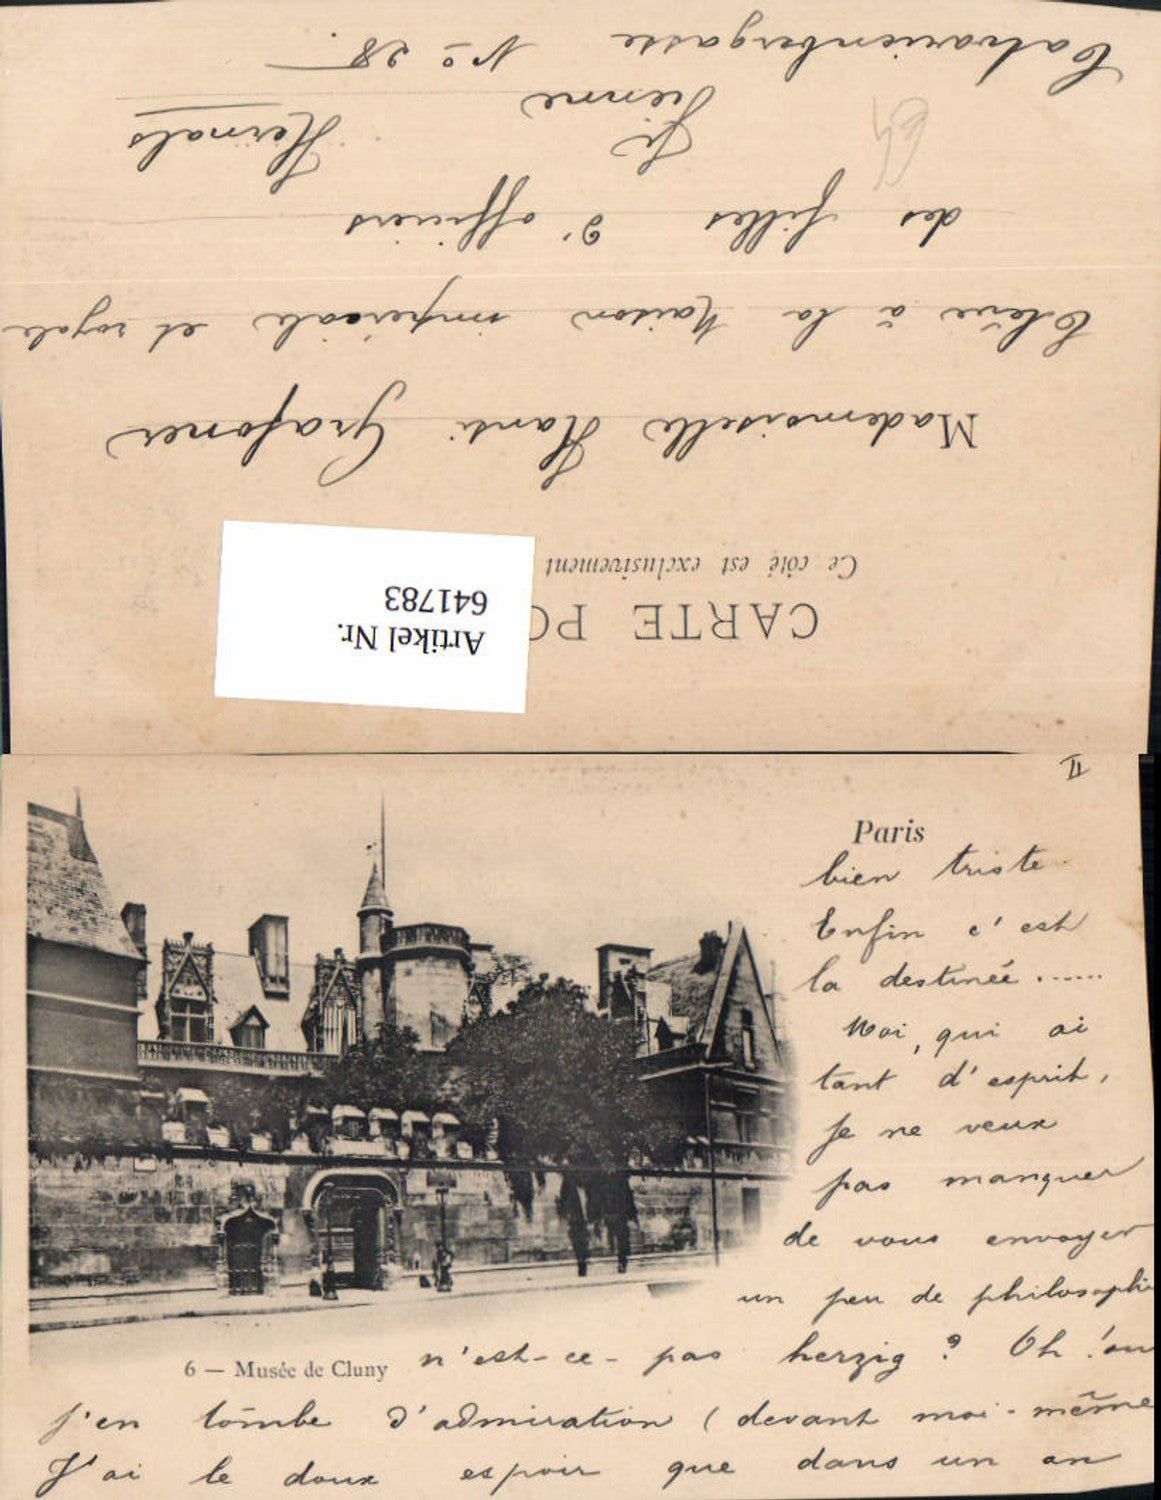 CARTE PO
Ce côté est exclusivement
Artikel Nr.
641783
Mademoiselle Hansi Grafoner
Elève à la Maison impériale et royale
des filles d'officiers
Vienne Hernals
Calvarienbergasse No 28.
II
Paris
bien triste.
Enfin c'est
la destinée ......
Moi, qui ai
tant d'esprit,
je ne veux
pas manquer
de vous envoyer
un peu de philosophi
6 — Musée de Cluny
n'est-ce-pas herzig? Oh! ou
j'en tombe d'admiration (devant moi-même
J'ai le doux espoir que dans un an